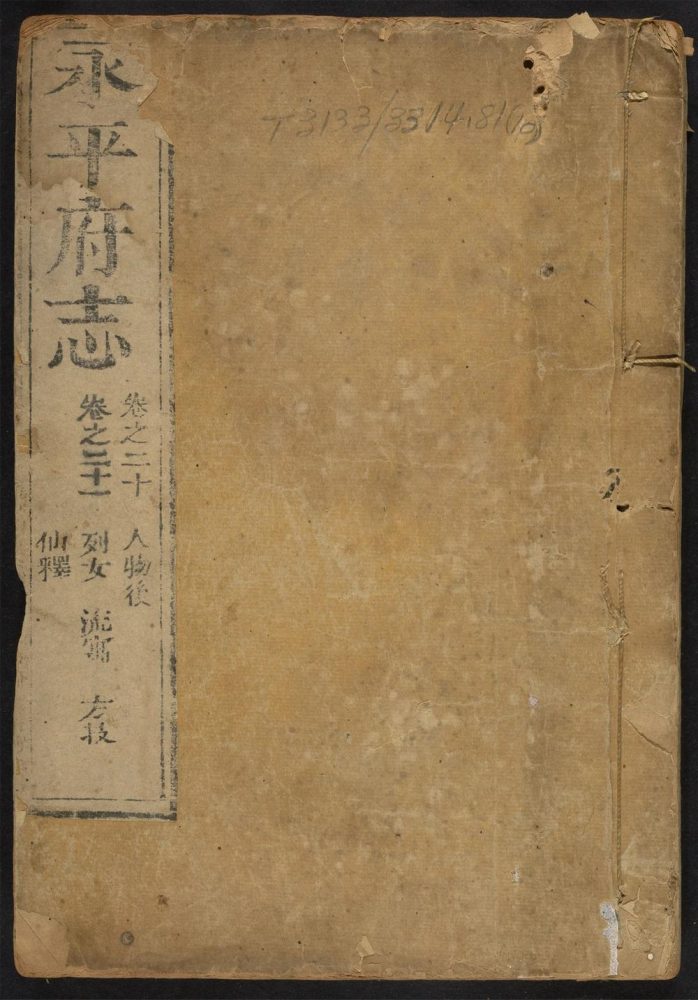 永平府志
卷之二十 人物後
卷之二十一 列女 流寓 方技
仙釋
T3133/3314.81(10)